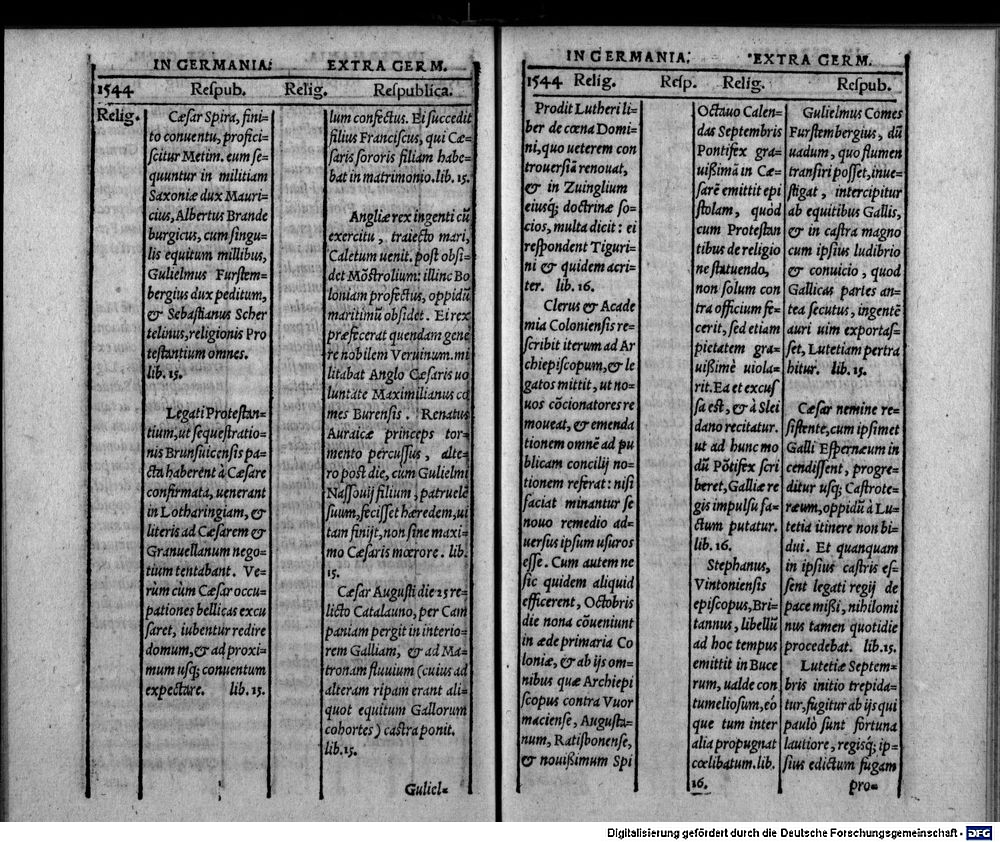 IN GERMANIA.
EXTRA GERM.
1544
Respub.
Relig.
Respublica.
Relig.
Cæsar Spira, fini=
to conuentu, profici=
scitur Metim. eum se=
quuntur in militiam
Saxoniæ dux Mauri=
cius, Albertus Brande
burgicus, cum singu=
lis equitum millibus,
Gulielmus Furstem=
bergius dux peditum,
& Sebastianus Scher
telinus, religionis Pro
testantium omnes.
lib. 15.
Legati Protestan=
tium, ut sequestratio=
nis Brunsuicensis pa=
cta haberent à Cæsare
confirmata, uenerant
in Lotharingiam, &
literis ad Cæsarem &
Granuellanum nego=
tium tentabant. Ve=
rùm cùm Cæsar occu=
pationes bellicas excu
saret, iubentur redire
domum, & ad proxi=
mum usq; conuentum
expectare. lib. 15.
lum confectus. Ei succedit
filius Franciscus, qui Cæ=
saris sororis filiam habe=
bat in matrimonio. lib. 15.
Angliæ rex ingenti cũ
exercitu, traiecto mari,
Caletum uenit. post obsi=
det Mõstrolium: illinc Bo
loniam profectus, oppidũ
maritimũ obsidet. Ei rex
præfecerat quendam gene
re nobilem Veruinum. mi
litabat Anglo Cæsaris uo
luntate Maximilianus co
mes Burensis. Renatus
Auraicæ princeps tor=
mento percussus, alte=
ro post die, cum Gulielmi
Nassouij filium, patruelē
suum, fecisset hæredem, ui
tam finijt, non sine maxi=
mo Cæsaris mœrore. lib.
15.
Cæsar Augusti die 25 re=
licto Catalauno, per Cam
paniam pergit in interio=
rem Galliam, & ad Ma=
tronam fluuium (cuius ad
alteram ripam erant ali=
quot equitum Gallorum
cohortes) castra ponit.
lib. 15.
Guliel=
IN GERMANIA.
EXTRA GERM.
1544
Relig.
Resp.
Relig.
Respub.
Prodit Lutheri li=
ber de cœna Domi=
ni, quo ueterem con
trouersiã renouat,
& in Zuinglium
eiusq; doctrinæ so=
cios, multa dicit: ei
respondent Tiguri=
ni & quidem acri=
ter. lib. 16.
Clerus & Acade
mia Coloniensis re=
scribit iterum ad Ar
chiepiscopum, & le
gatos mittit, ut no=
uos cõcionatores re
moueat, & emenda
tionem omnē ad pu
blicam concilij no=
tionem referat: nisi
faciat minantur se
nouo remedio ad=
uersus ipsum usuros
esse. Cum autem ne
sic quidem aliquid
efficerent, Octobris
die nona cõueniunt
in æde primaria Co
loniæ, & ab ijs om=
nibus quæ Archiepi
scopus contra Vuor
maciense, Augusta=
num, Ratisbonense,
& nouißimum Spi
Octauo Calen=
das Septembris
Pontifex gra=
uißimã in Cæ=
sarē emittit epi
stolam, quòd
cum Protestan
tibus de religio
ne statuendo,
non solum con
tra officium fe=
cerit, sed etiam
pietatem gra=
uißimè uiola=
rit. Ea et excus
sa est, & à Slei
dano recitatur.
ut ad hunc mo
dũ Põtifex scri
beret, Galliæ re
gis impulsu fa=
ctum putatur.
lib. 16.
Stephanus,
Vintoniensis
episcopus, Bri=
tannus, libellũ
ad hoc tempus
emittit in Buce
rum, ualde con
tumeliosum, eó
que tum inter
alia propugnat
cœlibatum. lib.
16.
Gulielmus Comes
Furstembergius, dũ
uadum, quo flumen
transiri posset, inue=
stigat, intercipitur
ab equitibus Gallis,
& in castra magno
cum ipsius ludibrio
& conuicio, quod
Gallicas partes an=
tea secutus, ingentē
auri uim exportas=
set, Lutetiam pertra
hitur. lib. 15.
Cæsar nemine re=
sistente, cum ipsimet
Galli Espernæum in
cendissent, progre=
ditur usq; Castrote=
ræum, oppidũ à Lu=
tetia itinere non bi=
dui. Et quanquam
in ipsius castris es=
sent legati regij de
pace mißi, nihilomi
nus tamen quotidie
procedebat. lib. 15.
Lutetiæ Septem=
bris initio trepida=
tur, fugitur ab ijs qui
paulò sunt fortuna
lautiore, regisq; ip=
sius edictum fugam
pro=
Digitalisierung gefördert durch die Deutsche Forschungsgemeinschaft - DFG